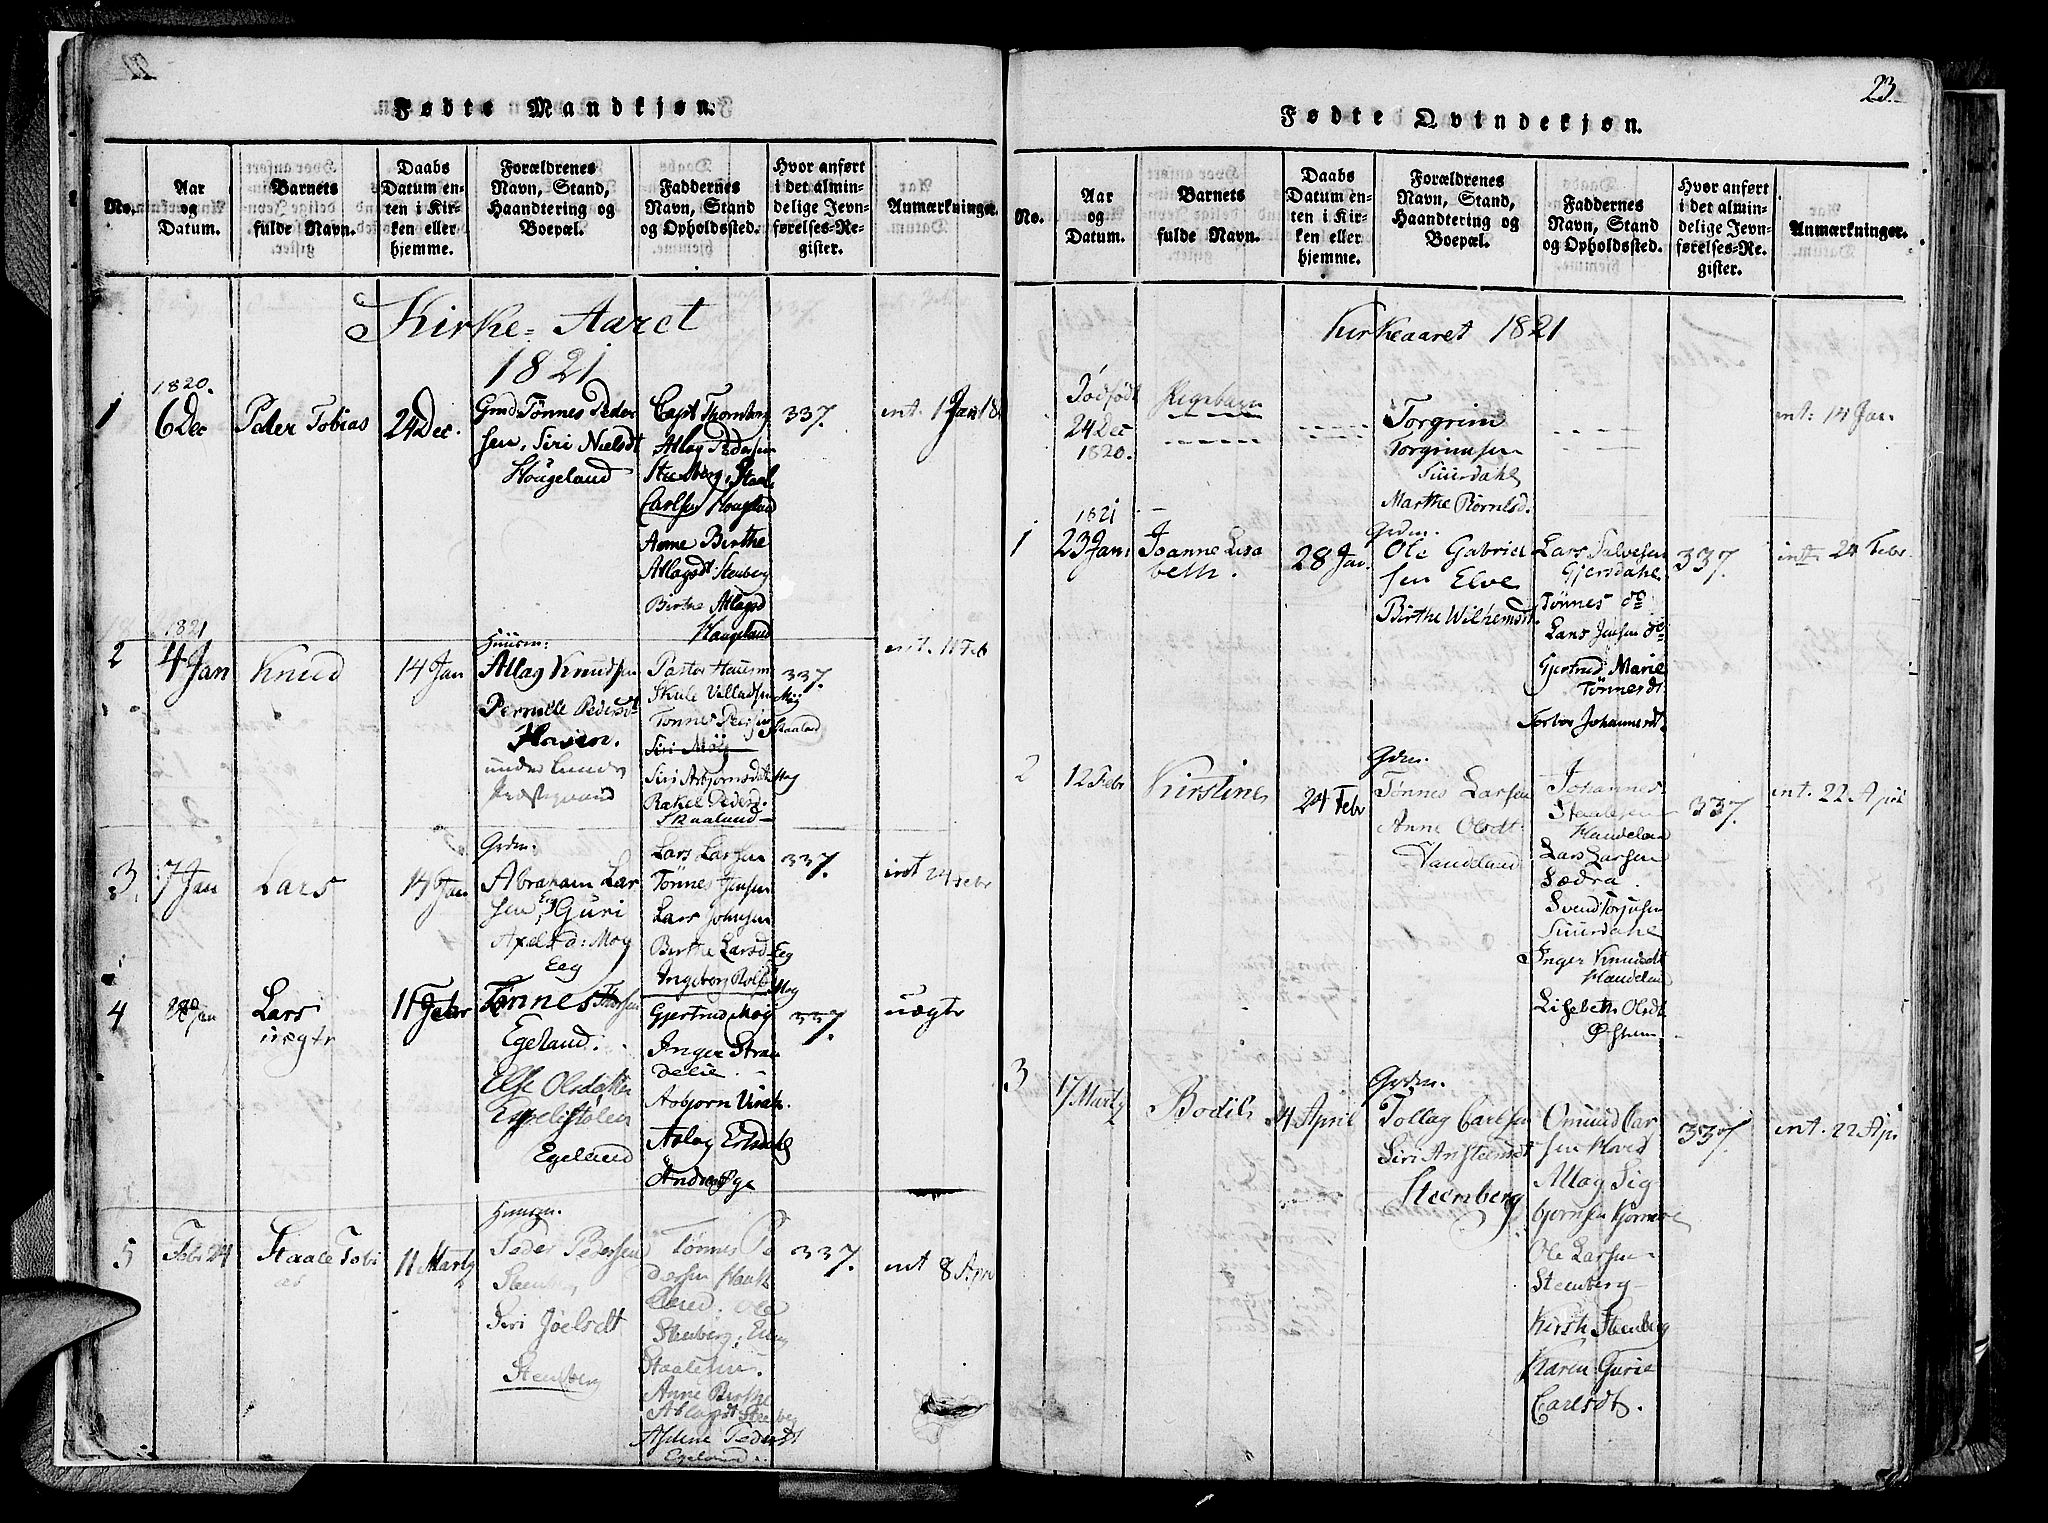 22
Fødte Mandkjøn.
No.
Aar
og
Datum.
Barnets
fulde Navn.
Daabs
Datum en-
ten i Kir-
ken eller
hjemme.
Forældrenes
Navn, Stand,
Haandtering og
Boepæl.
Faddernes
Navn, Stand
og Opholdssted.
Hvor anført
i det almin-
delige Jevn-
førelses-Re-
gister.
Anmærkninger.
Kirke-Aaret
1821
1
1820.
6 Dec
Peder Tobias
24 Dec.
Gmd Tønnes Peder
sen, Siri Nielsdt
Hougeland
Capt Thornberg
Atlag Pedersen
Steenberg, Staale
Carlsen Hougland
Anne Birthe
Atlagsdt Stenberg
Birthe Atlagsd
Haugeland
337.
int. 1 Jan 18
2
1821
4 Jan
Knud
14 Jan
Huusm:
Atlag Knudsen
Pernille Pedersdt
Hosien.
under Lunds
Præstegield
Pastor
Skule Villadsen Møi
Tønnes Peersen Skaaland
Siri Møi
Siri Asbjørnsdt Mog
Rakel Pedersd.
Skaaland
337.
int. 11 Feb
3
7 Jan
Lars
14 Jan
Grdm:
Abraham Lar
sen Eeg Guri
Axelsd: Mog
Eeg
Lars Larsen
Tønnes Jensen
Lars Johnsen
Birthe Larsd Eeg
Ingeborg Rolfs Mog
337.
int 24 Febr
4
28 Jan
Lars
uægte
11 Febr
Tønnes Thorsen
Egeland.
Else Olsdatter
Eppelistølen
Egeland
Gjertrud Møi
Inger Stran
delie.
Asbjørn Virak.
Aslag Ersdahl
Andreas Øye
337.
uægte
5
Febr 24
Staale Tobi
as
11 Martz
Huusm.
Peder Pedersen
Steenberg
Siri Joelsdt
Stenberg
Tønnes Pe
dersen Hauk
land. Ole
Stenberg, Elling
Staalesen.
Anne Birthe
Atlagsdt Steenberg
Alene Pedersdt
Egeland.
337.
int 8 Apri
23.
Fødte Qvindekjøn.
No.
Aar
og
Datum.
Barnets
fulde Navn.
Daabs
Datum en-
ten i Kir-
ken eller
hjemme.
Forældrenes
Navn, Stand,
Haandtering og
Boepæl.
Faddernes
Navn, Stand
og Opholdssted.
Hvor anført
i det almin-
delige Jevn-
førelses-Re-
gister.
Anmærkninger.
Kirkeaaret 1821
Dødfødt
24 Dec
1820.
Pigebarn
Torgrim
Torgrimsen
Suurdahl
Marthe Børnilsd.
int: 14 Jan
1
1821
23 Jan:
Joanne Lisa
beth.
28 Jan.
Grdm.
Ole Gabriel
sen Elve
Birthe Wilhemsdt.
Lars Salvesen
Gjersdahl
Tønnes do
Lars Jensen do
Gjertrud Marie
Tønnesdt
Torbor Johannesdt
337.
int. 24 Febr.
2
12 Febr
Kirstine
24 Febr
Grdm.
Tønnes Larsen
Anne Olsdt
Handeland
Johannes
Staalesen
Handeland
Lars Larsen
Sædra.
Svend Torjusen
Suurdahl
Inger Knudsdt
Handeland
Lisebeth Olsdt
Østrem
337.
int. 22 April
3
17 Martz
Bodil
4 April
Grdm.
Tollag Carlsen
Siri Ansteensdt
Steenberg
Omund Car
sen Hoved
Atlag Sig
bjørnsen
Ole Larsen
Steenberg
Kirst. Steenberg
Karen Gurie
Carlsdt.
337.
int. 22 Apr